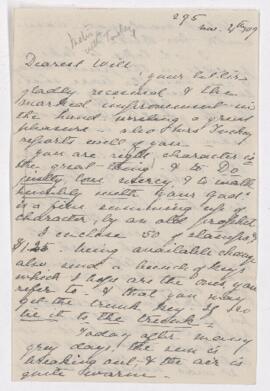 295
Nov. 21st 09
Dearest Will
your letter
gladly received & the
marked improvement in
the hand writing a great
pleasure - also Mrs
reports well of you.
you are right, character is
the great thing, & to Do
justly, love mercy, & to walk
humbly with your God
is a fine summing up of
character, by an old prophet
I enclose 50 stamps,
& 1.25. being available change
also send a bunch of keys
which I hope are the ones you
refer to & that you may
get the trunk key if so
tie it to the trunk -
Today after many
grey days the sun is
breaking out, & the air is
quite warm -